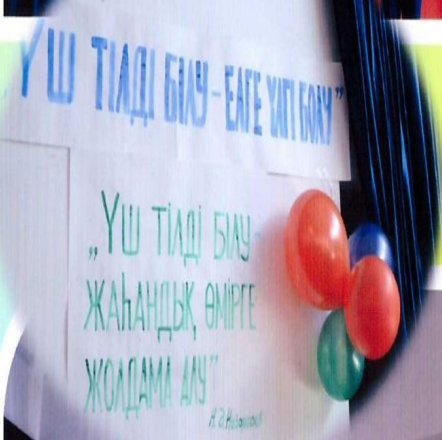 ҮШ ТІЛДІ БІЛУ - ЕЛГЕ ҮЛГІ БОЛУ"
„ҮШ ТІЛДІ БІЛУ -
ЖАҺАНДЫҚ ӨМІРГЕ
ЖОЛДАМА АЛУ"
Н.Ә.Назарбаев